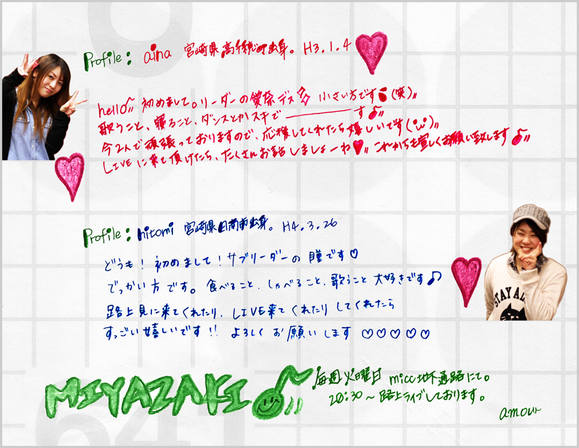 Profile: aina 宮崎県高千穂町出身。 H3.1.4
hello♪ 初めまして。リーダーの愛奈デス 小さい方です(笑)
歌うこと、踊ること、ダンスとかスキで――――す♪
今2人で頑張っておりますので、応援してくれたら嬉しいです(^^)
LIVEに来て頂けたら、たくさんお話しましょーね♥ これからも宜しくお願い致します♪
Profile: hitomi 宮崎県日南市出身。 H4.3.26
どうも! 初めまして! サブリーダーの瞳です♡
でっかい方です。食べること、しゃべること、歌うこと大好きです♪
路上見に来てくれたり、LIVE来てくれたりしてくれたら
すっごい嬉しいです!! よろしくお願いします♡♡♡♡♡
MIYAZAKI♪
毎週火曜日 micc地下通路にて。
20:30〜路上ライブしております。
amour
STAY AL